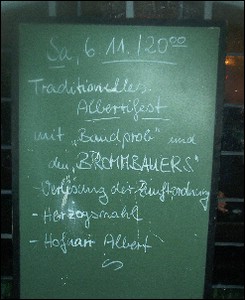 Sa, 6 11. / 20 00
Traditionelles
Albertifest
mit "Bandprob" und
den "BROMMBAUERS"
- Verlesung der Zunftordnung
- Herzogsmahl
- Hofnarr Albert